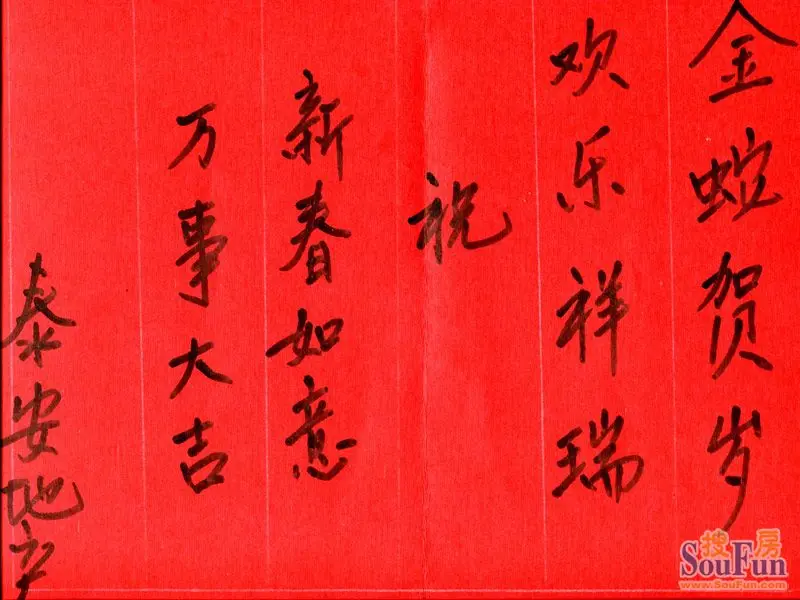 金蛇贺岁
欢乐祥瑞
祝
新春如意
万事大吉
泰安地产
搜房
SouFun
www.SouFun.com